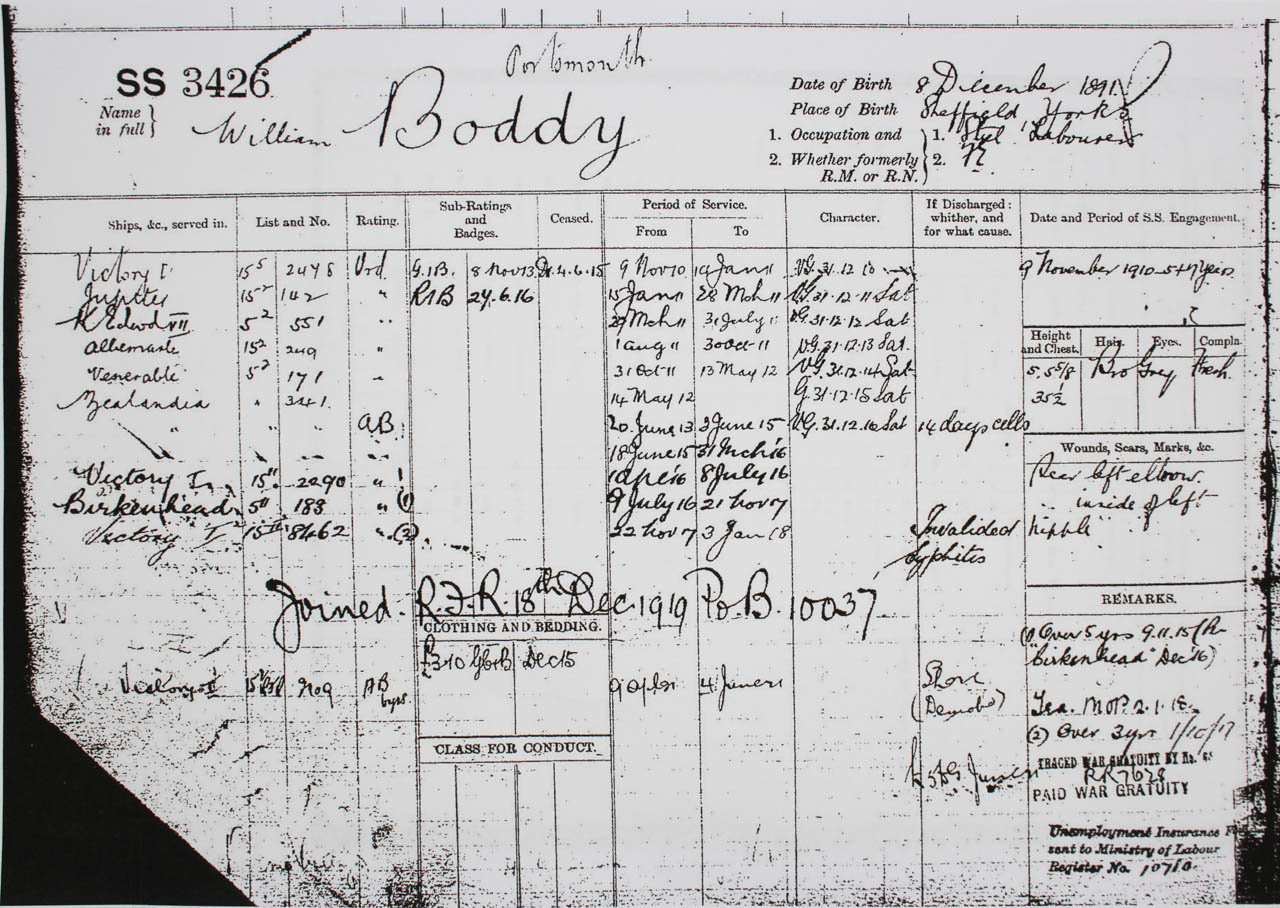 Portsmouth
SS 3426
Name in full } William Boddy
Date of Birth 8 December 1891
Place of Birth Sheffield Yorks
1. Occupation and 1. Steel Labourer
2. Whether formerly R.M. or R.N. 2.
Ships, &c., served in. List and No. Rating. Sub-Ratings and Badges. Ceased. Period of Service. From To Character. If Discharged: whither, and for what cause. Date and Period of S.S. Engagement.
Victory I 15⁵ 2478 Ord. G.1B. 8 Nov 13 4.6.15 9 Nov 10 14 Jan 11 VG.31.12.10 9 November 1910 - 5+7 years
Jupiter 15² 142 " 27.6.16 15 Jan 11 28 Mch 11 VG.31.12.11 Sat
K Edwd VII 5² 551 " 29 Mch 11 31 July 11 VG.31.12.12 Sat
Albemarle 15² 249 " 1 Aug 11 30 Oct 11 VG.31.12.13 Sat.
Venerable 5² 171 " 31 Oct 11 13 May 12 VG.31.12.14 Sat
Zealandia " 341. 14 May 12 G.31.12.15 Sat
" " " AB 20 June 13 3 June 15 VG.31.12.16 Sat 14 days cells
" " " " 18 June 15 31 Mch 16
Victory I 15" 2290 " 1 Apl 16 8 July 16
Birkenhead 5" 188 " (1) 9 July 16 21 Nov 17
Victory I 15 8462 " (2) 22 Nov 17 3 Jan 18 Invalided
Syphilis
Height and Chest. Hair. Eyes. Compln.
5. 5 5/8 Bro Grey Fresh
35½
Wounds, Scars, Marks, &c.
Rear left elbow.
inside of left
nipple
Joined R.F.R. 18th Dec. 1919 Po. B. 10037
CLOTHING AND BEDDING.
Dec 15
Victory I AB Shore
(Demobd)
CLASS FOR CONDUCT.
REMARKS.
(1) Over 5 yrs 9.11.15 (
"Birkenhead" Dec 16)
2.1.18.
(2) Over 3 yrs 1/10/17
TRACED WAR GRATUITY BY
RR7628
PAID WAR GRATUITY
Unemployment Insurance
sent to Ministry of Labour
Register No. 10710